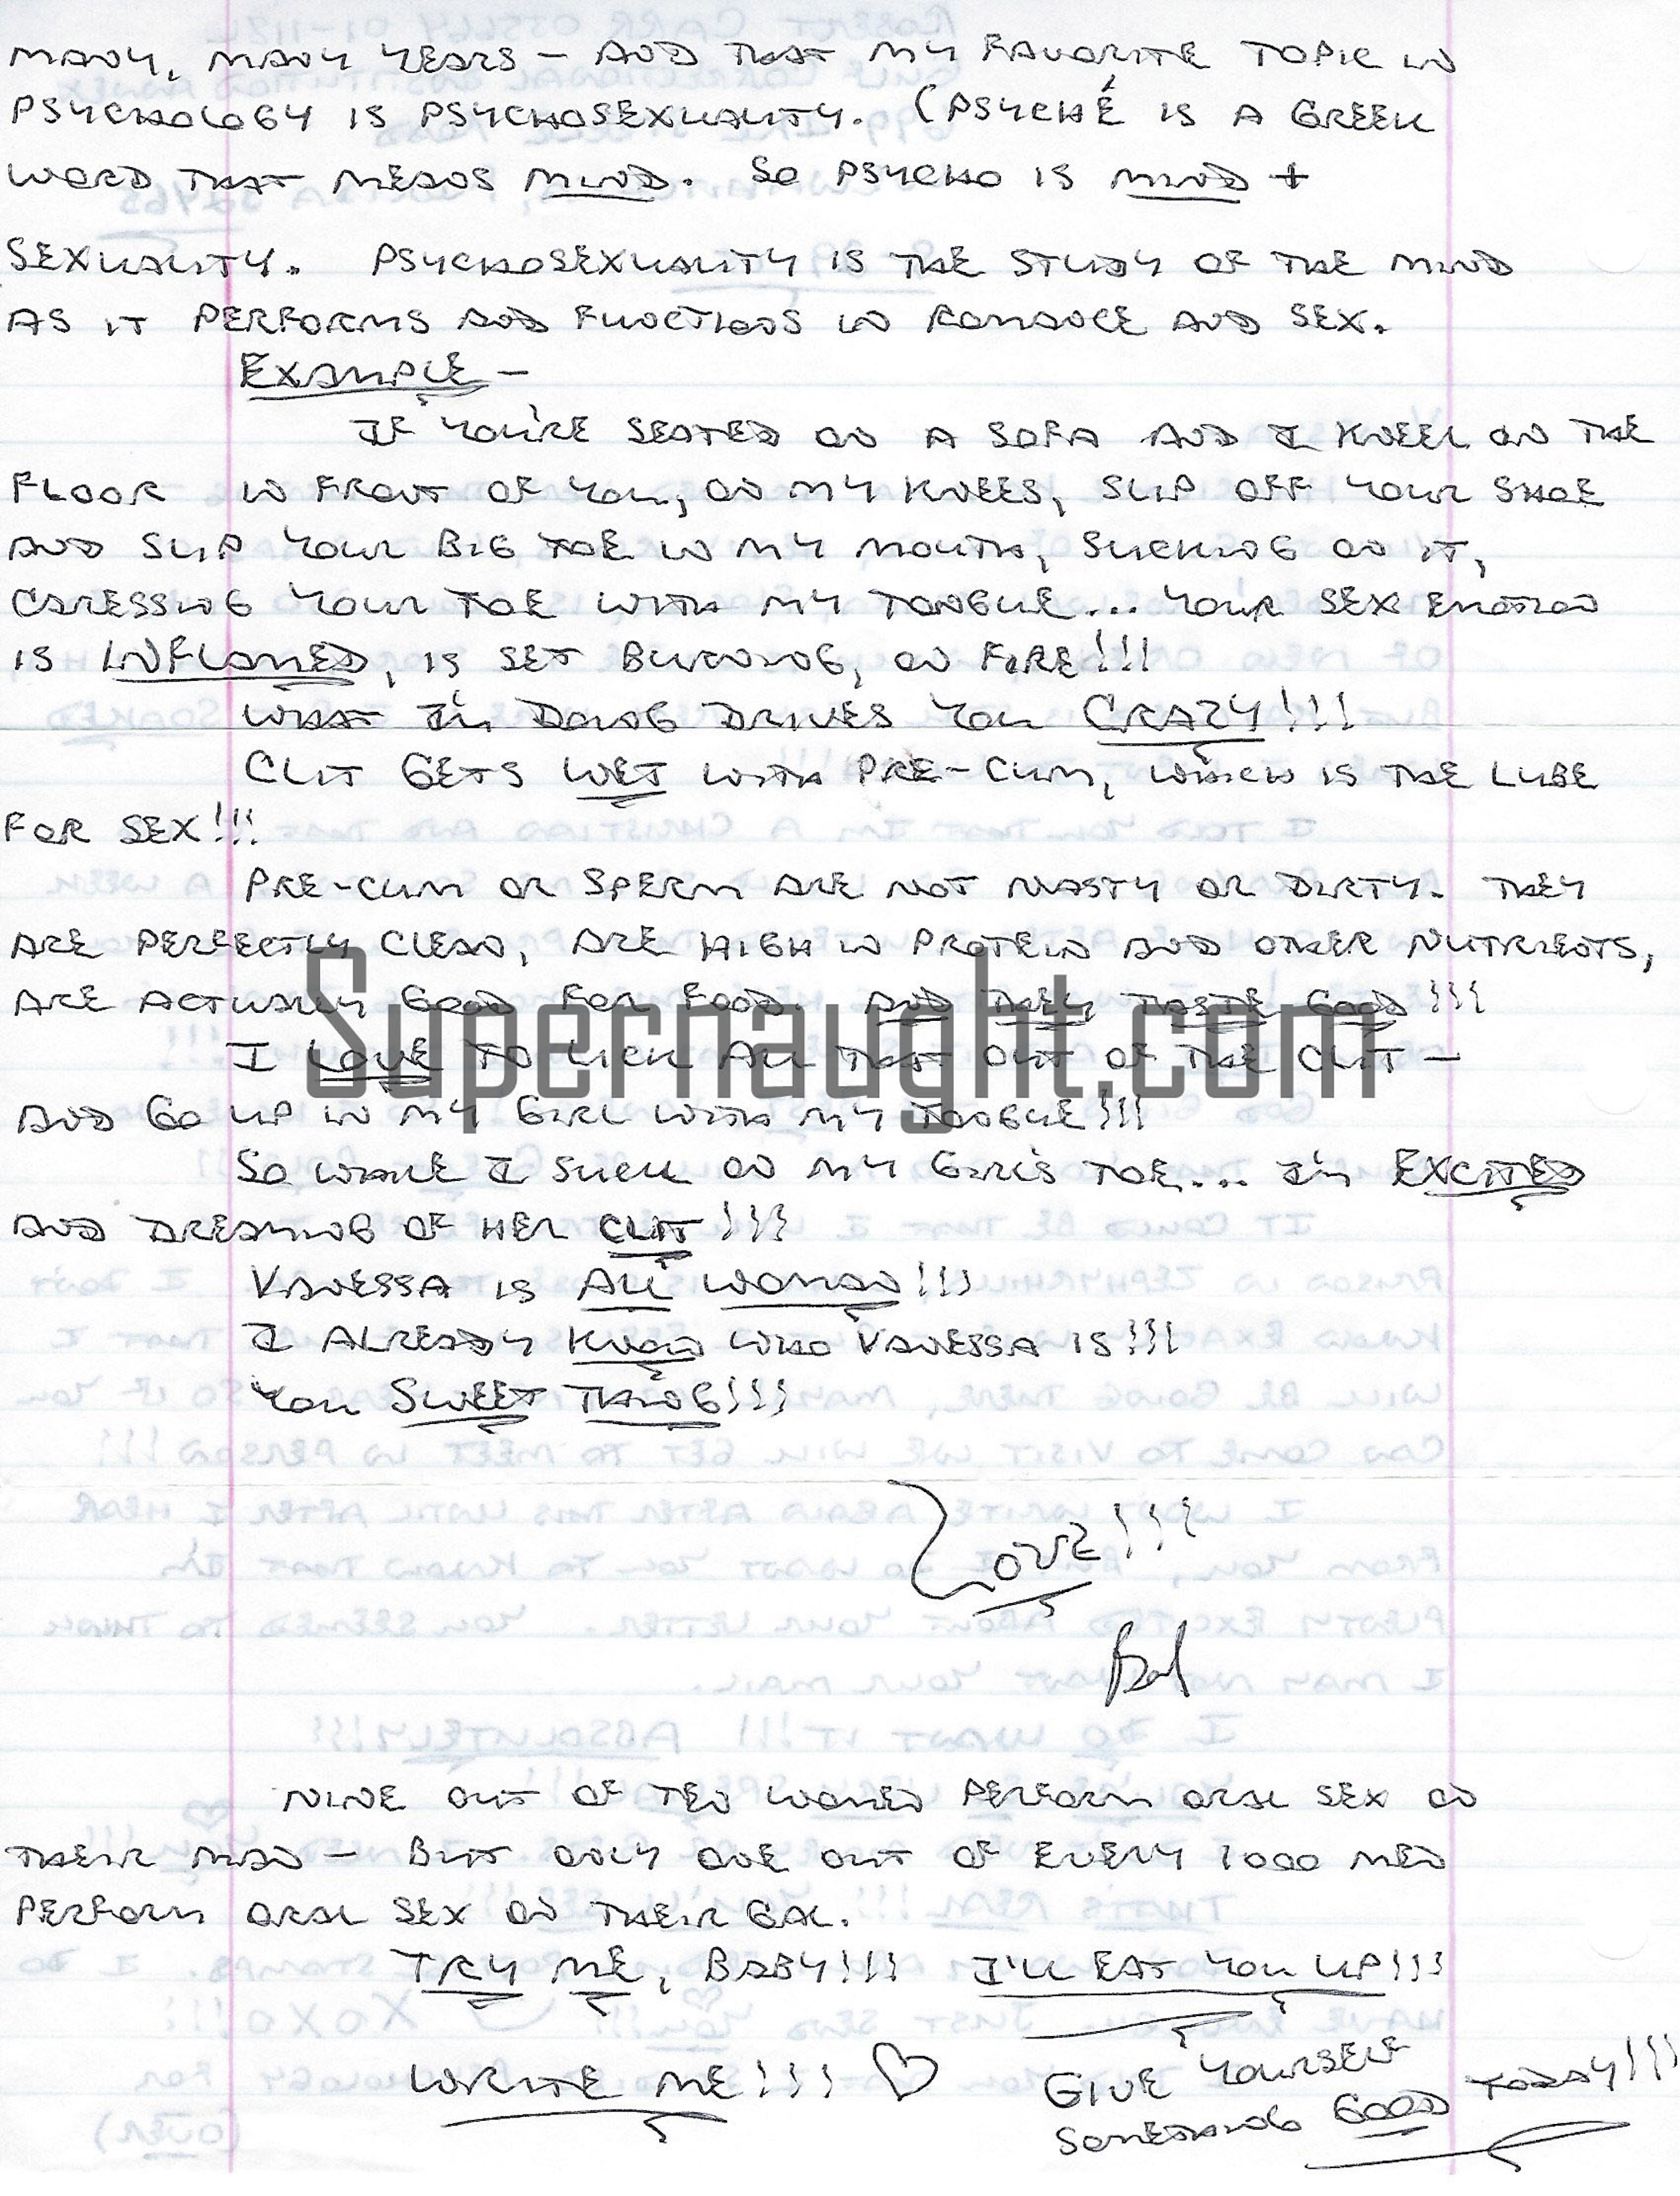 MANY, MANY YEARS – AND THAT MY FAVORITE TOPIC IN
PSYCHOLOGY IS PSYCHOSEXUALITY. (PSYCHÉ IS A GREEK
WORD THAT MEANS MIND. SO PSYCHO IS MIND +
SEXUALITY. PSYCHOSEXUALITY IS THE STUDY OF THE MIND
AS IT PERFORMS AND FUNCTIONS IN ROMANCE AND SEX.
EXAMPLE –
IF YOU'RE SEATED ON A SOFA AND I KNEEL ON THE
FLOOR IN FRONT OF YOU, ON MY KNEES, SLIP OFF YOUR SHOE
AND SLIP YOUR BIG TOE IN MY MOUTH, SUCKING ON IT,
CARESSING YOUR TOE WITH MY TONGUE... YOUR SEX EMOTION
IS INFLAMED, IS SET BURNING, ON FIRE!!!
WHAT I'M DOING DRIVES YOU CRAZY!!!
CLIT GETS WET WITH PRE-CUM, WHICH IS THE LUBE
FOR SEX!!!
PRE-CUM OR SPERM ARE NOT NASTY OR DIRTY. THEY
ARE PERFECTLY CLEAN, ARE HIGH IN PROTEIN AND OTHER NUTRIENTS,
ARE ACTUALLY GOOD FOR FOOD. AND THEY TASTE GOOD!!!
Supernaught.com
I LOVE TO LICK ALL THAT OUT OF THE CLIT –
AND GO UP IN MY GIRL WITH MY TONGUE!!!
SO WHILE I SUCK ON MY GIRL'S TOE... I'M EXCITED
AND DREAMING OF HER CLIT!!!
VANESSA IS ALL WOMAN!!!
I ALREADY KNOW WHO VANESSA IS!!!
YOU SWEET THING!!!
LOVE!!!
NINE OUT OF TEN WOMEN PERFORM ORAL SEX ON
THEIR MAN – BUT ONLY ONE OUT OF EVERY 1000 MEN
PERFORM ORAL SEX ON THEIR GAL.
TRY ME, BABY!!! I'LL EAT YOU UP!!!
WRITE ME!!! ♡
GIVE YOURSELF
SOMETHING GOOD TODAY!!!